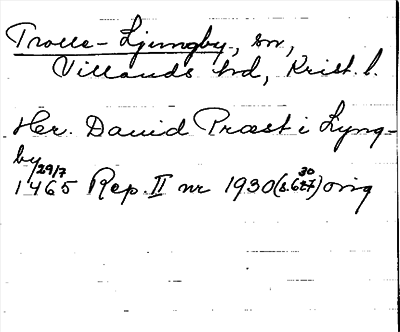 Trolle-Ljungby, sn,
Villands hd, Krist. l.
Her. David Præst i Lyng-
by
29/7
1465 Rep. II nr 1930 (s. 627) orig
30